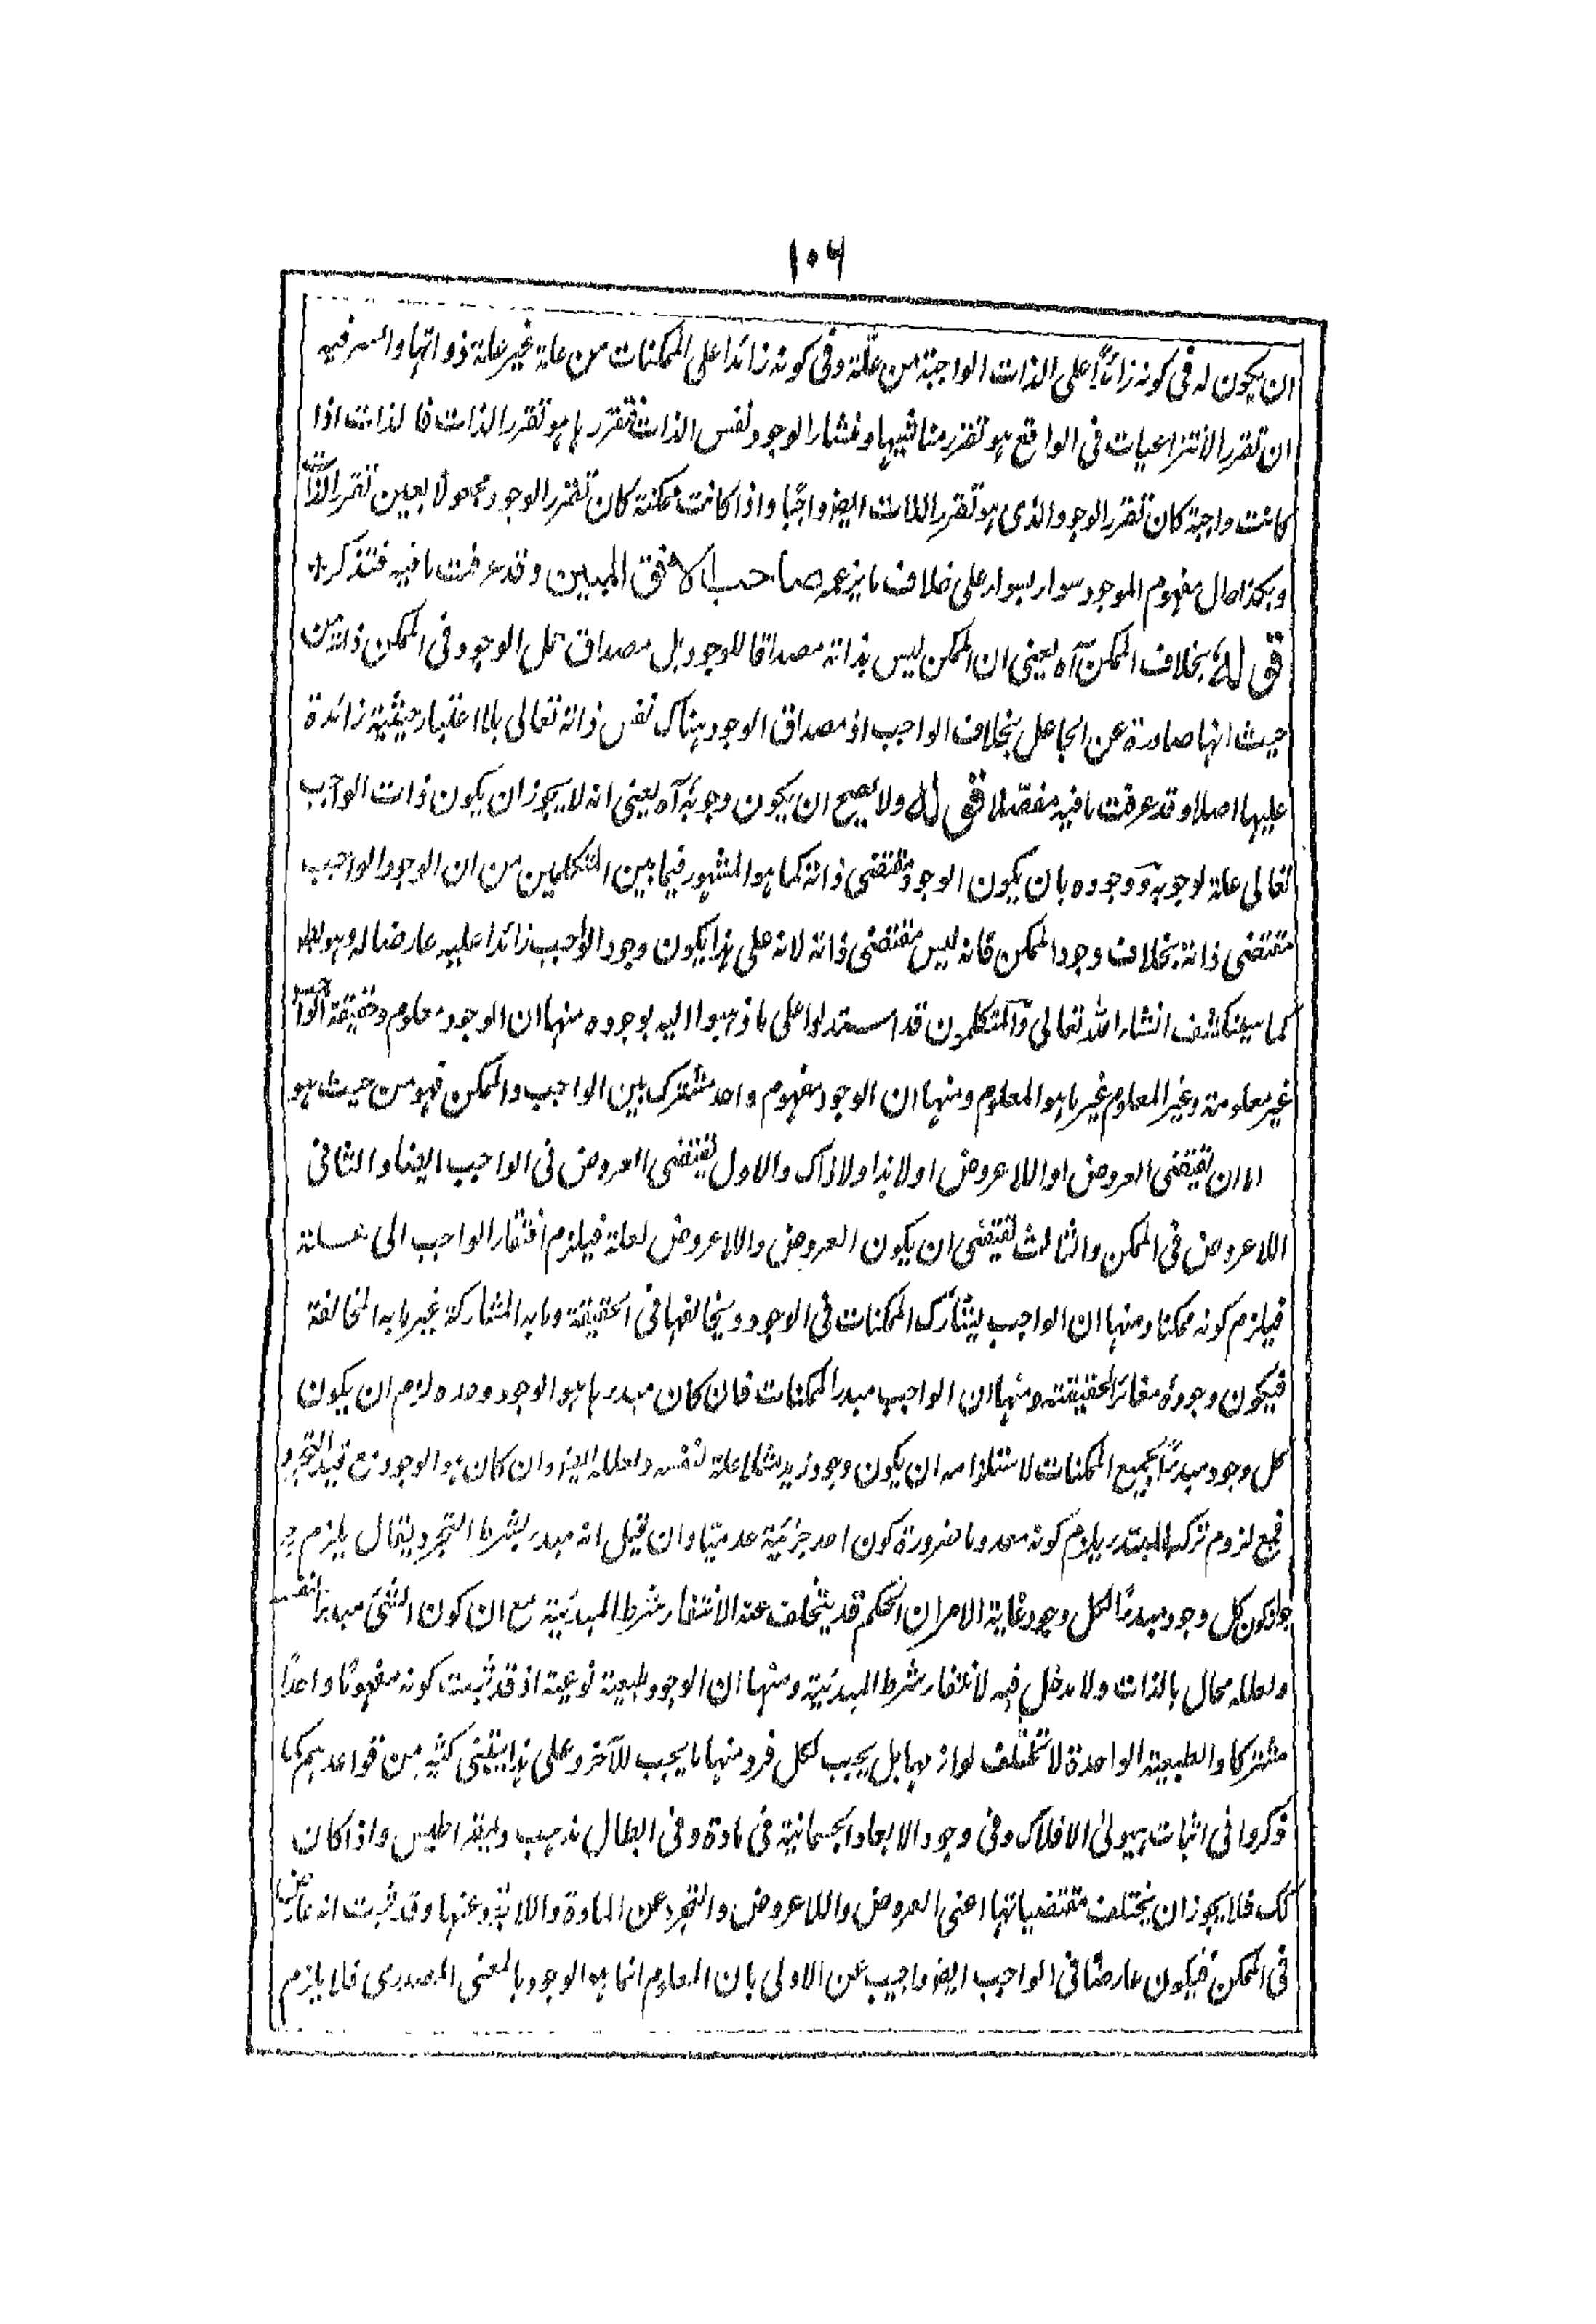 ١٠٦
ان يكون له فى كونه زائدًا على الذات الواجبة من علّة وفى كونه زائدا على الممكنات من علة غير علة ذواتها والسر فيه
ان تقرر الانتزاعيات فى الواقع هو تقرر مناشيها ومنشأ الوجود نفس الذات فتقررها هو تقرر الذات فالذات اذا
كانت واجبة كان تقرر الوجود الذى هو تقرر الذات ايضا واجبًا واذا كانت ممكنة كان تقرر الوجود مجعولا بعين تقرر الذات
وهكذا حال مفهوم الموجود سواء بسواء على خلاف ما يزعمه صاحب الافق المبين وقد عرفت ما فيه فتذكر
قوله بخلاف الممكن آه يعنى ان الممكن ليس بذاته مصداقا للوجود بل مصداق حمل الوجود فى الممكن ذاته من
حيث انها صادرة عن الجاعل بخلاف الواجب اذ مصداق الوجود هناك نفس ذاته تعالى بلا اعتبار حيثية زائدة
عليها اصلا وقد عرفت ما فيه مفصلا قوله ولا يصح ان يكون وجوبه آه يعنى انه لا يجوز ان يكون ذات الواجب
تعالى علة لوجوبه ووجوده بان يكون الوجود مقتضى ذاته كما هو المشهور فيما بين المتكلمين من ان الوجود الواجب
مقتضى ذاته بخلاف وجود الممكن فانه ليس مقتضى ذاته لانه على هذا يكون وجود الواجب زائدا عليه عارضا له وهو بط
كما سينكشف انشاء الله تعالى والمتكلمون قد استدلوا على ما ذهبوا اليه بوجوه منها ان الوجود معلوم وحقيقة الواجب
غير معلومة وغير المعلوم غير ما هو المعلوم ومنها ان الوجود مفهوم واحد مشترك بين الواجب والممكن فهو من حيث هو
اما ان يقتضى العروض او اللاعروض او لا هذا ولا ذاك والاول يقتضى العروض فى الواجب ايضا والثانى
اللاعروض فى الممكن والثالث يقتضى ان يكون العروض واللاعروض لعلة فيلزم افتقار الواجب الى علة
فيلزم كونه ممكنا ومنها ان الواجب يشارك الممكنات فى الوجود ويخالفها فى الحقيقة وما به المشاركة غير ما به المخالفة
فيكون وجوده مغائرا لحقيقته ومنها ان الواجب مبدء الممكنات فان كان مبدءها هو الوجود وحده لزم ان يكون
كل وجود مبدءًا لجميع الممكنات لاستلزامه ان يكون وجود زيد مثلا علة لنفسه ولعلله ايضا وان كان هو الوجود مع قيد التجرد
فمع لزوم تركب المبدء يلزم كونه معدوما ضرورة كون احد جزئية عدميا وان قيل انه مبدء بشرط التجرد يقال يلزم ح
جواز كون كل وجود مبدءًا لكل وجود غاية الامر ان الحكم قد يتخلف عنه لانتفاء شرط المبدئية مع ان كون الشئ مبدءا لنفسه
ولعلله محال بالذات ولا مدخل فيه لانتفاء شرط المبدئية ومنها ان الوجود طبيعة نوعية اذ قد ثبت كونه مفهومًا واحدًا
مشتركا والطبيعة الواحدة لا تختلف لوازمها بل يجب لكل فرد منها ما يجب للآخر وعلى هذا يبتنى كثير من قواعدهم كما
ذكروا فى اثبات هيولى الافلاك وفى وجود الابعاد الجسمانية فى مادة وفى ابطال مذهب ذيمقراطيس واذا كان
كك فلا يجوز ان يختلف مقتضياتها اعنى العروض واللاعروض والتجرد عن المادة واللاتجرد عنها وقد ثبت انه عارض
فى الممكن فيكون عارضًا فى الواجب ايضا واجيب عن الاولى بان المعلوم انما هو الوجود بالمعنى المصدرى فلا يلزم